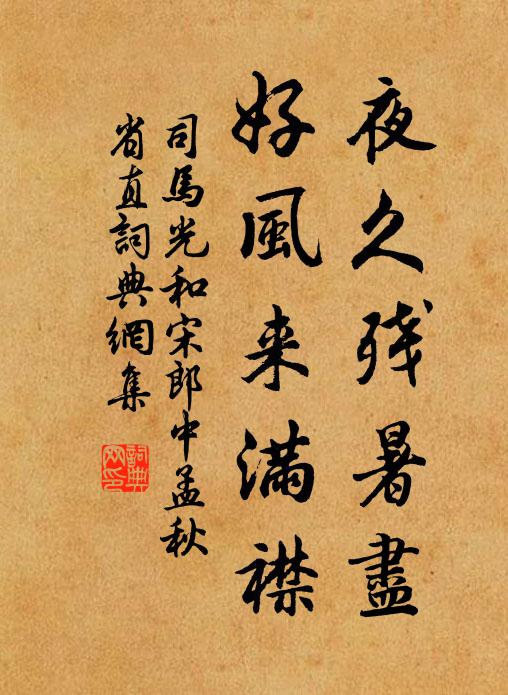 夜久殘暑盡
好風来滿襟
司馬光和宋郎中孟秋
省直詞典網集
詞典网印